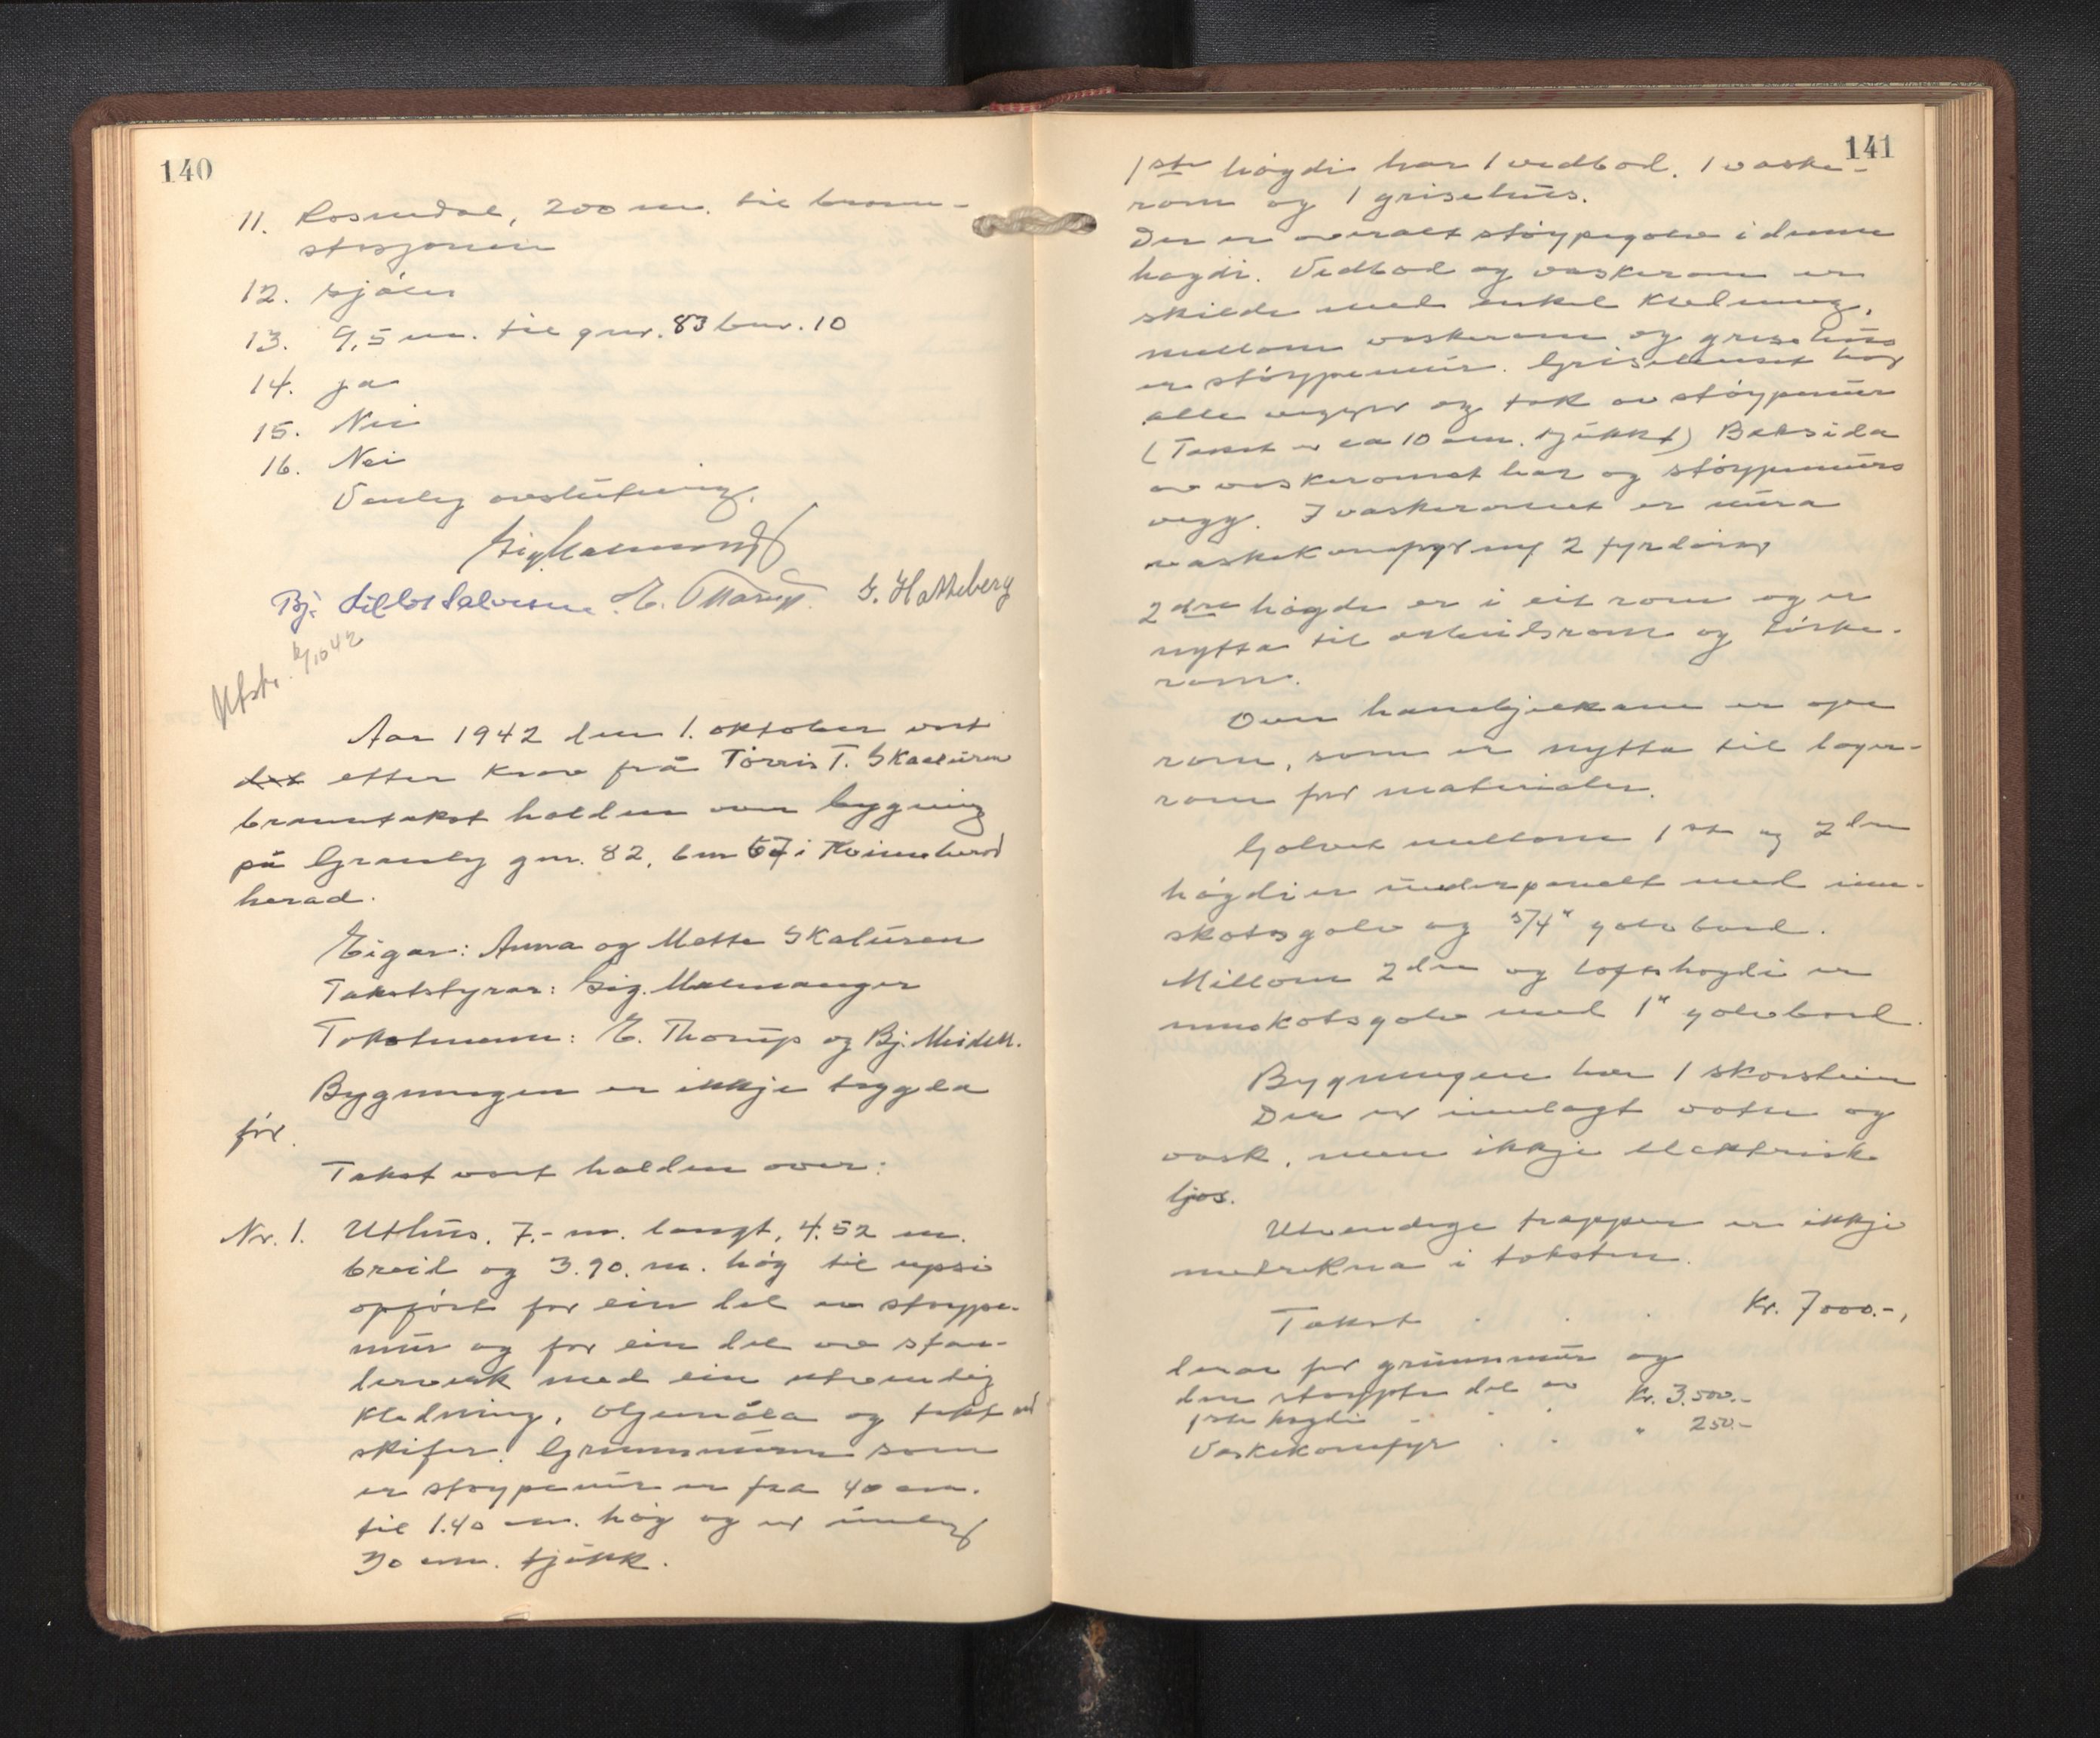 140
11. Rosendal, 200 m. til brann-
stasjonen
12. sjøen
13. 9,5 m. til gnr. 83 bnr. 10
14. ja
15. Nei
16. Nei
Venleg avslutning.
Sig Malmanger
Bj. E. Thorup. G. Hatteberg
Utskr. 6/10 42
Aar 1942 den 1. oktober vart
det etter krav frå Torris T. Skaaluren
branntakst halden over bygning
på Granly gnr. 82, bnr 67 i Kvinnherad
herad.
Eigar: Anna og Mette Skaluren
Takststyrar: Sig. Malmanger
Takstmenn: E. Thorup og Bj. Meidell.
Bygningen er ikkje trygda
før.
Takst vart halden over:
Nr. 1. Uthus. 7.- m. langt, 4.52 m.
breid og 3.90. m. høg til upsi
opført for ein del av støype-
mur og for ein del av sten-
derverk med ein utvendig
kledning, oljemåla og tekt med
skifer. Grunnmuren som
er støypemur er fra 40 cm.
til 1.40 m. høg og er
30 cm. tjukk.
141
1ste høgdi har 1 vedbod, 1 vaske-
rom og 1 grisehus.
Der er overalt støypegolv i denne
høgdi. Vedbod og vaskerom er
skilde med enkel kledning,
mellom vaskerom og grisehus
er støypemur. Grisehuset har
alle vegger og tak av støypemur
(Taket er ca 10 cm. tjukkt) Baksida
av vaskeromet har og støypemurs
vegg. I vaskeromet er mura
vaskekomfyr 2
2dre høgdi er i eit rom og er
nytta til arbeidsrom og tørke-
rom.
Over hanebjelkane er ope
rom, som er nytta til lager-
rom for materialer.
Golvet mellom 1ste og 2dre
høgdi er underpanelt med inn-
skotsgolv og 5/4" golvbord.
Millom 2dre og loftshøgdi er
innskotsgolv med 1" golvbord.
Bygningen har 1 skorstein
Der er innlagt vatn og
vask, men ikkje elektrisk
ljos.
Utvendige trapper er ikkje
medrekna i taksten.
Takst . . . Kr. 7000.-,
derav for grunnmur og
den støypte del av Kr. 3.500.-
1ste høgdi - . .
Vaskekomfyr . . " 250.-